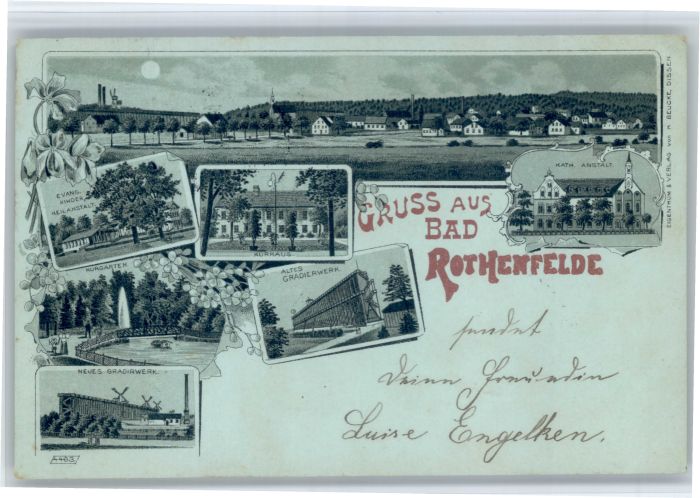 EVANG.
KINDER
HEILANSTALT
KURHAUS
KATH. ANSTALT.
GRUSS AUS
BAD
ROTHENFELDE
KURGARTEN
ALTES
GRADIERWERK.
NEUES GRADIRWERK.
sendet
Deine Freundin
Luise Engelken.
EIGENTHUM & VERLAG VON H. BEUCKE, DISSEN.